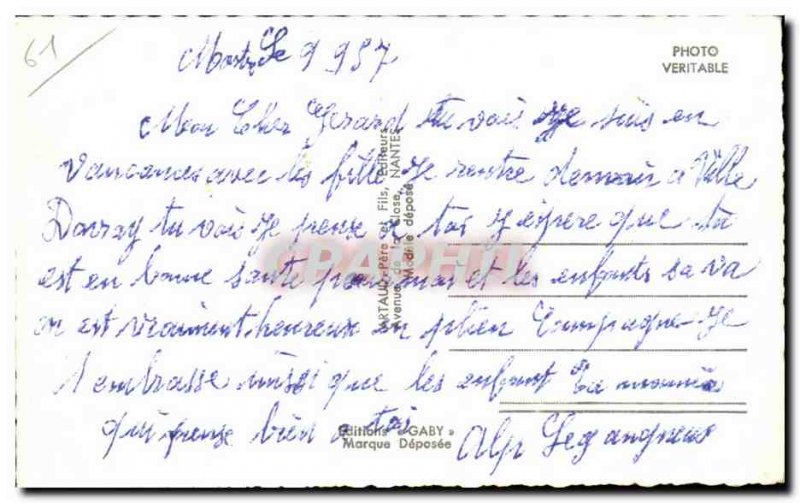 61
Le 9 957
PHOTO
VERITABLE
Mon Cher Gerard tu vois je suis en
vancances avec les fille je rentre demain a Ville
Davray tu vois je pense a toi j espere que tu
est en bonne sante pour moi et les enfants sa va
on est vraiment heureux en plien Campagne je
t embrasse aussi que les enfant ta
qui pense bien a toi
ARTAUD Père et Fils, Editeurs
Avenue de la Close, NANTES
Modèle déposé
Editions "GABY"
Marque Déposée